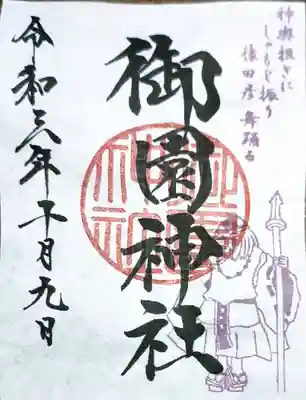 神輿担ぎに
しゃもじ振り
猿田彦舞踊る
御園神社
令和六年十月九日